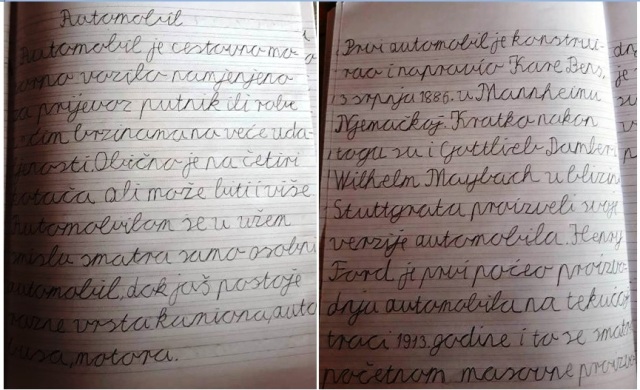 Automobil
Automobil je cestovno mo-
torno vozilo namjenjeno
za prijevoz putnik ili robe
većim brzinama na veće uda-
ljenosti. Obično je na četiri
kotača ali može biti i više
Automobilom se u užem
smislu smatra samo osobni
automobil, dok još postoje
razne vrsta kamiona, auto
busa, motora.
Prvi automobil je konstrui-
rao i napravio Karl Benz,
3 srpnja 1886. u Mannheimu
Njemačkoj. Kratko nakon
toga su i Gottlieb
Wilhelm Maybach u blizin
Stuttgrata proizveli svoje
verzije automobila. Henry
Ford je prvi počeo proizvo-
dnju automobila na tekućoj
traci 1913. godine i to se smatr
početnom masovne proizvo